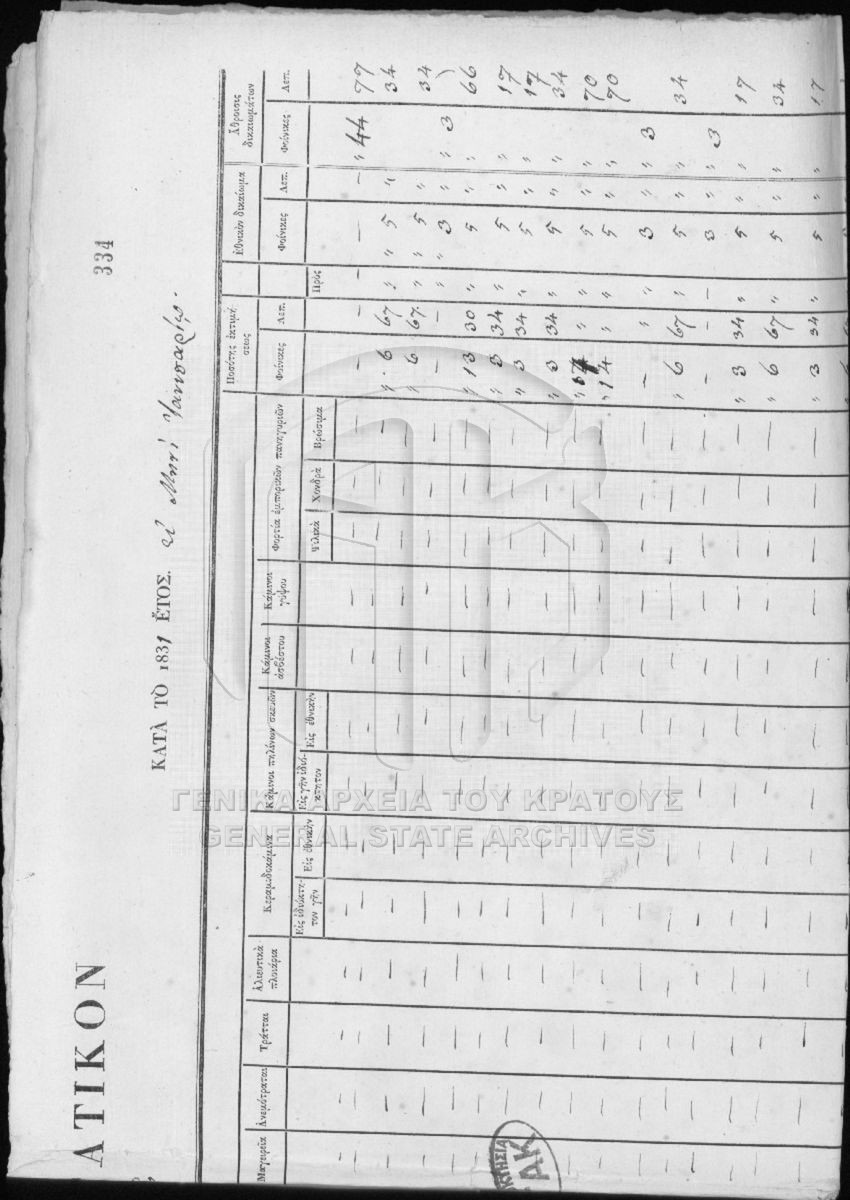 ΑΤΙΚΟΝ
334
ΚΑΤΑ ΤΟ 1831 ἜΤΟΣ.
Μαγειρεῖα
Ἀνεμότραται
Τράτται
Ἁλιευτικὰ πλοιάρια
Κεραμιδοκάμινα
Εἰς ἰδιόκτητον γῆν
Εἰς ἐθνικὴν
Κάμινοι πηλίνων σκευῶν
Εἰς γῆν ἰδιόκτητον
Εἰς ἐθνικὴν
Κάμινοι ἀσβέστου
Κάμινοι γύψου
Φορτία ἐμπορικῶν πανηγυριῶν
Ψιλικὰ
Χονδρὰ
Βρώσιμα
Ποσότης ἐκτιμήσεως
Φοίνικες
Λεπ.
Πρὸς
Ἐθνικὸν δικαίωμα
Φοίνικες
Λεπ.
Ἄθροισις δικαιωμάτων
Φοίνικες
Λεπ.
— — — — — 44 77
6 67 " 5 " " 34
6 67 " 5 " " 34
— — " 3 " " 3
13 30 " 5 " " 66
3 34 " 5 " " 17
3 34 " 5 " " 17
3 34 " 5 " " 34
" " 5 " " 70
14 " " 5 " " 70
— " " 3 " " 3
6 67 " 5 " " 34
— — — 3 " " 3
3 34 " 5 " " 17
6 67 " 5 " " 34
3 34 " 5 " " 17
ΓΕΝΙΚΑ ΑΡΧΕΙΑ ΤΟΥ ΚΡΑΤΟΥΣ
GENERAL STATE ARCHIVES
ΑΚ